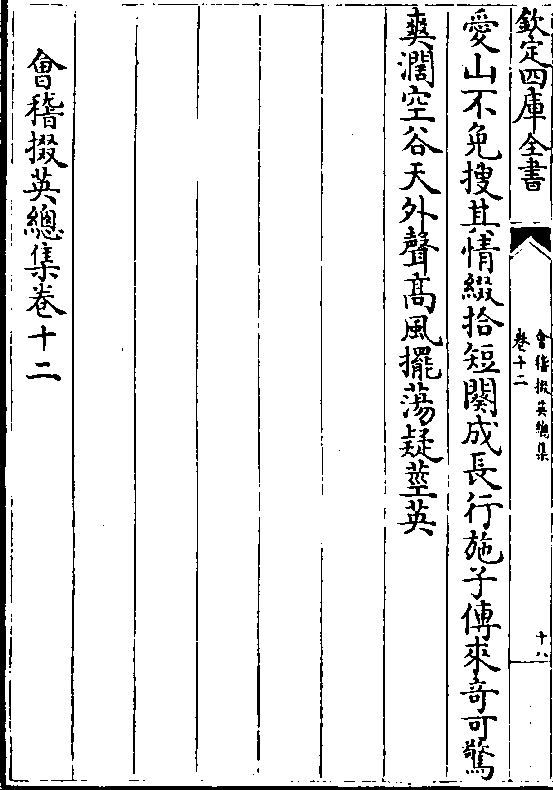 欽定四庫全書
會稽掇英總集
卷十二
十八
愛山不免搜其情綴拾短闋成長行施子傳來竒可驚
爽濶空谷天外聲髙風擺蕩疑莖英
會稽掇英總集卷十二